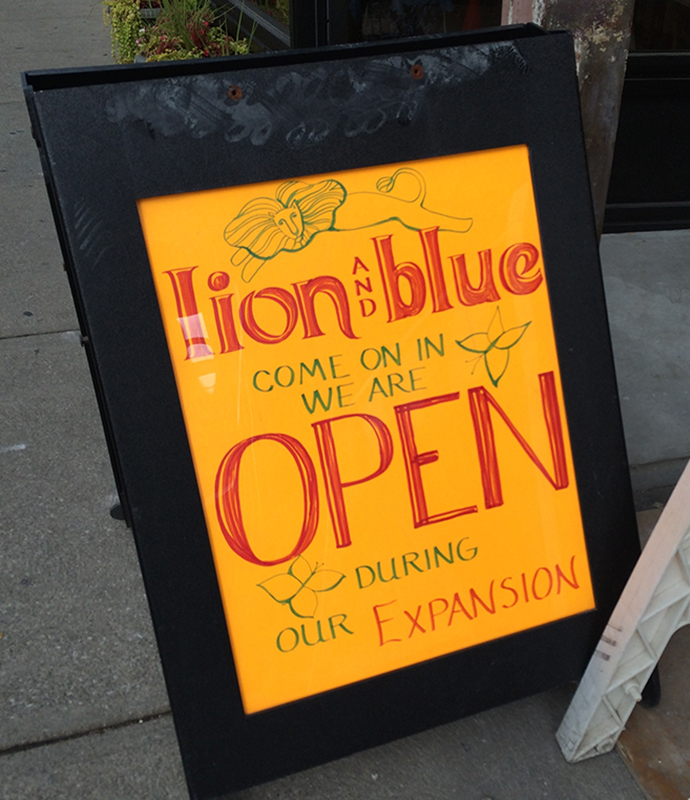 lion AND blue
COME ON IN
WE ARE
OPEN
DURING
OUR EXPANSION